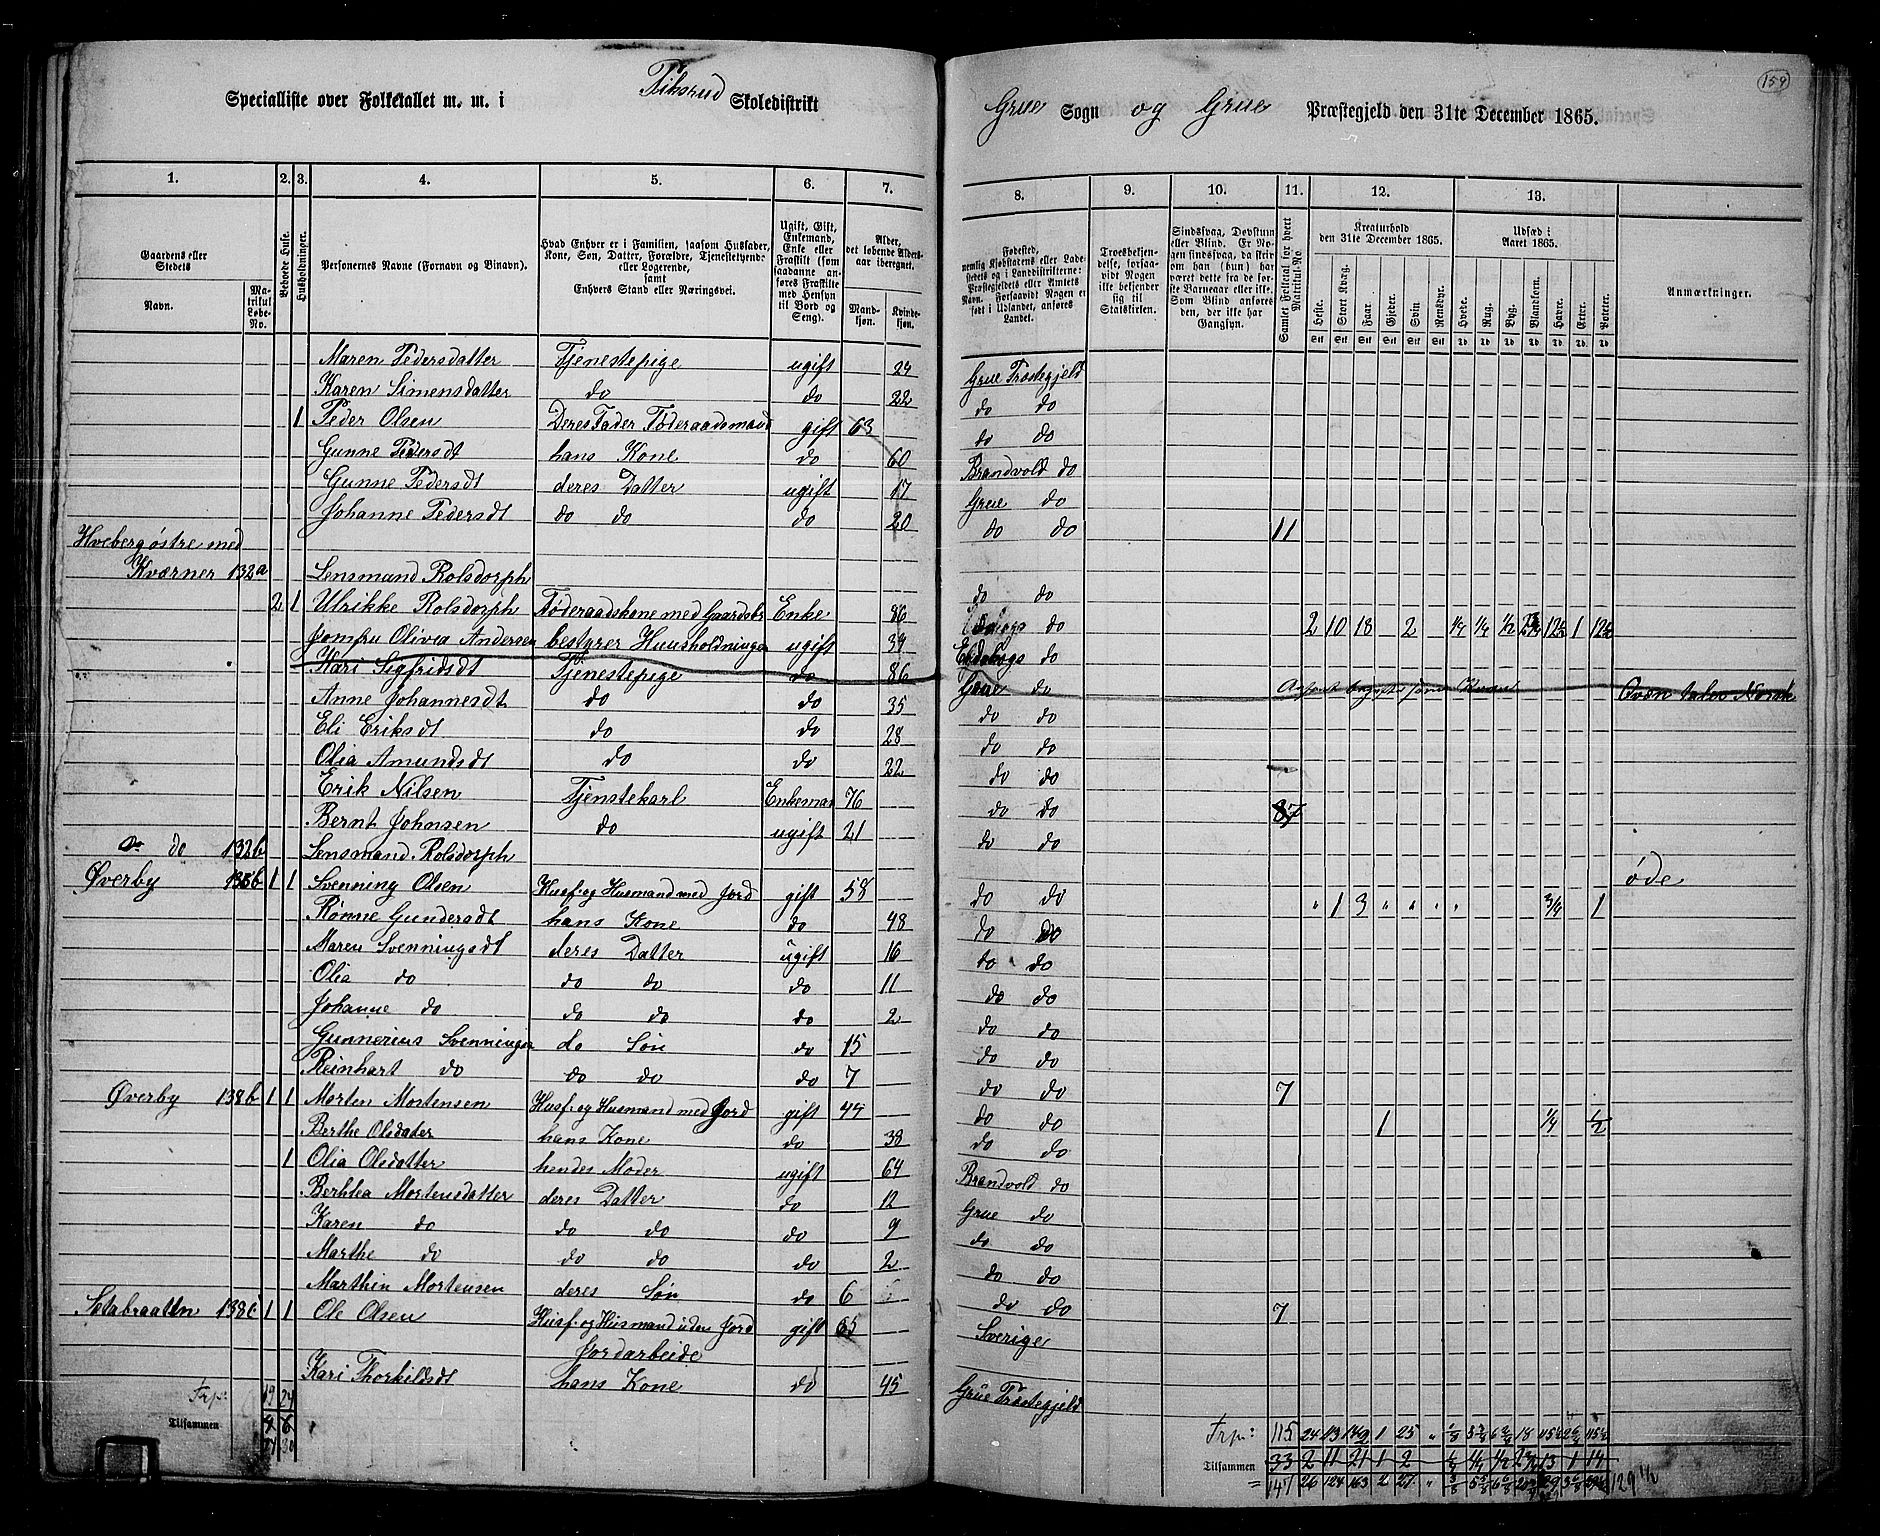 159
Specialliste over Folketallet m. m. i Skoledistrikt Grue Sogn og Grue Præstegjeld den 31te December 1865.
1. 2. 3. 4. 5. 6. 7. 8. 9. 10. 11. 12. 13.
Gaardens eller Stedets
Navn.
Matrikul Løbe-No.
Beboede Huse.
Husholdninger.
Personernes Navne (Fornavn og Binavn).
Hvad Enhver er i Familien, saasom Husfader, Kone, Søn, Datter, Forældre, Tjenestetyende eller Logerende, samt Enhvers Stand eller Næringsvei.
Ugift, Gift, Enkemand, Enke eller Fraskilt (som saadanne anføres Fraskilte med Hensyn til Bord og Seng).
Alder, det løbende Aldersaar iberegnet.
Mandkjøn.
Kvindekjøn.
Fødested,
nemlig Kjøbstadens eller Ladestedets og i Landdistrikterne: Præstegjeldets eller Amtets Navn. Forsaavidt Nogen er født i Udlandet, anføres Landet.
Troesbekjendelse, forsaavidt Nogen ikke bekjender sig til Statskirken.
Sindssvag, Døvstum eller Blind. Er Nogen sindssvag, da skriv om han (hun) har været dette fra de første Barneaar eller ikke. Som Blind anføres den, der ikke har Gangsyn.
Samlet Folketal for hvert Matrikul-No
Kreaturhold den 31te December 1865.
Heste. Stort Kvæg. Faar. Gjeder. Svin Rensdyr.
Udsæd i Aaret 1865.
Hvede. Rug. Byg. Blandkorn. Havre. Erter. Poteter.
Anmærkninger.
Maren Pedersdatter Tjenestepige ugift 24 Grue Præstegjeld
Karen Simensdatter do do 22 do do
1 Peder Olsen Deres Fader Føderaadsmand gift 63 do do
Gunne Pedersdt hans Kone do 60 Brandvold do
Gunne Pedersdt deres Datter ugift 17 Grue do
Johanne Pedersdt do do do 20 do do 11
Hveberg østre med
Kværner 132a Lensmand Rolsdorph
2 1 Ulrikke Rolsdorph Føderaadskone med Gaardsbr Enke 86 do 2 10 18 2 1/4 1/4 1/2 12½ 1 12½
Jomfru Olivia Andersen bestyrer Huusholdningen ugift 34 do
Kari Sigfridsdt Tjenestepige do 86 Grue do
Anne Johannesdt do do 35 do do
Eli Eriksdt do do 28 do do
Olia Amundsdt do do 22 do do
Erik Nilsen Tjenstekarl Enkeman 76 do do
Bernt Johnsen do ugift 21 do do
do 132b Lensmand Rolsdorph øde
Øverby 1 1 Svenning Olsen Husf. og Husmand med Jord gift 58 do do " 1 3 " " " " 3/4 1
Rønne Gundersdt hans Kone do 48 do do
Maren Svenningsdt deres Datter ugift 16 do do
Olia do do do do 11 do do
Johanne do do do do 2 do do
Gunnerius Svenningsen do Søn do 15 do do
Reinhart do do do do 7 do do 7
Øverby 138b 1 1 Morten Mortensen Husf. og Husmand med Jord gift 44 do do 1 1/4 1/2
Berthe Olsdater hans Kone do 38 do do
1 Olia Olsdatter hendes Moder ugift 64 Brandvold do
Berthea Mortensdatter deres Datter do 12 Grue do
Karen do do do do 9 do do
Marthe do do do do 2 do do
Marthin Mortensen deres Søn do 6 do do 7
1 1 Ole Olsen Husf. og Husmand uden Jord gift 65 Sverige
Jordarbeide
Kari Thorkildsdt hans Kone do 45 Grue Præstegjeld
Frp: 19 24 Frp: 115 24 1 25
Tilsammen Tilsammen 33 2 11 21 1 2 13 1 14
30 147 26 124 163 2 27 129 ½